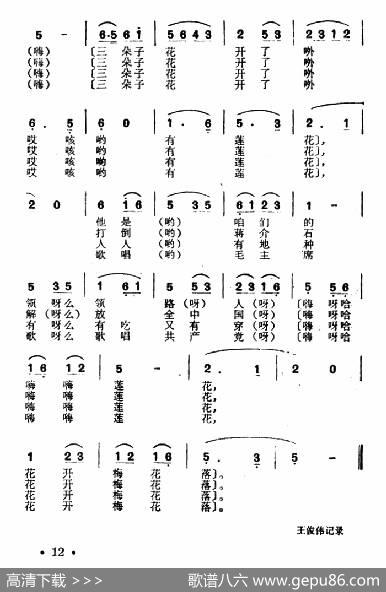 5 - 6·5 6 i 5 6 4 3 2 5 3 2 3 1 2
(嗨) 〔三 朵子 花 开 了 哟
(嗨) 〔三 朵子 花 开 了 哟
(嗨) 〔三 朵子 花 开 了 哟
(嗨) 〔三 朵子 花 开 了 哟
6. 5 6 0 1· 6 5 · 3 2. 1
哎 咳 哟 有 莲 花〕,
哎 咳 哟 有 莲 花〕,
哎 咳 哟 有 莲 花〕,
哎 咳 哟 有 莲 花〕,
2 0 6 1 6 5 3 5 6 1 2 3 1 -
他 是 (哟) 咱 们 的
打 倒 (哟) 蒋 介 石
人 人 (哟) 有 地 种
歌 唱 (哟) 毛 主 席
5 3 5 1 6 1 5 5 3 2 3 5 5 3 5
领 呀么 领 路 (呀) 人 (呀) 〔嗨 呀哈
解 (呀么) 放 全 中 国 (呀) 〔嗨 呀哈
有 呀么 有吃 又 有 穿 (呀) 〔嗨 呀哈
歌 呀么 歌唱 共 产 党 (呀) 〔嗨 呀哈
1 6 1 2 5 - 2. 1 2 0
嗨 嗨 莲 花,
嗨 嗨 莲 花,
嗨 嗨 莲 花,
嗨 嗨 莲 花,
1 2 3 1 2 1 6 5. 3 5 -
花 开 梅 花 落〕。
花 开 梅 花 落〕。
花 开 梅 花 落〕。
花 开 梅 花 落〕。
王俊伟记录
· 12 ·
高清下载 >>> 歌谱八六 www.gepu86.com